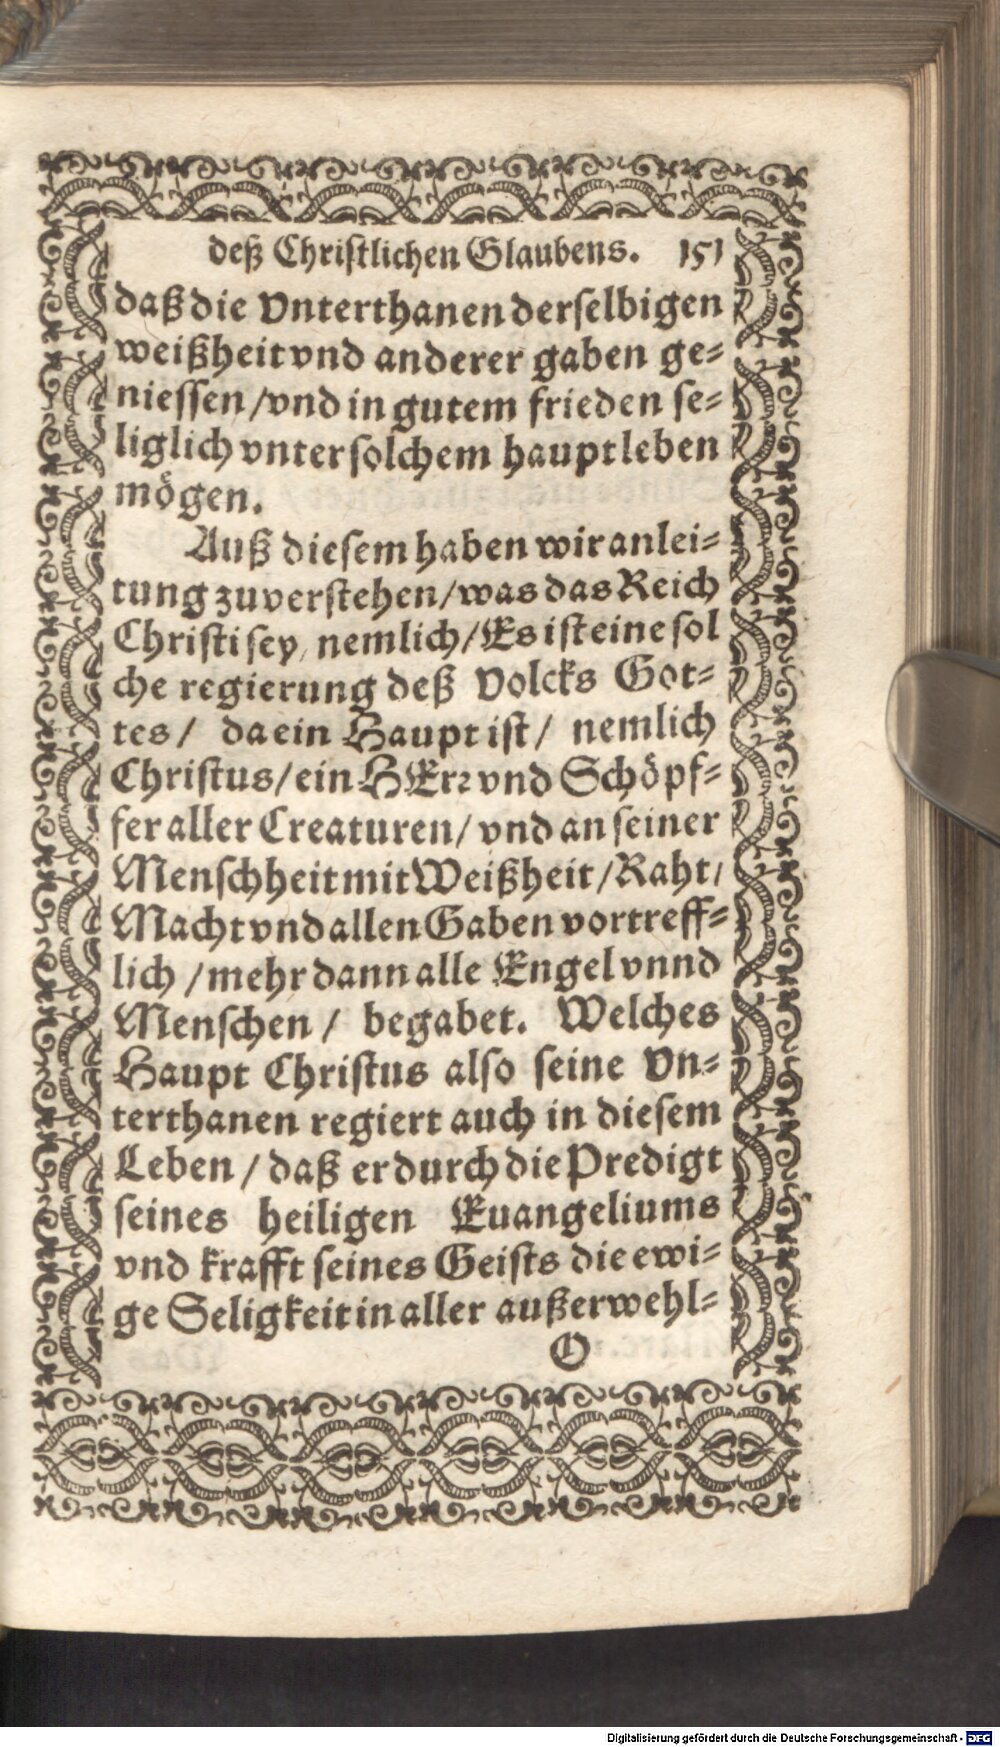 deß Christlichen Glaubens. 151
daß die Vnterthanen derselbigen
weißheit vnd anderer gaben ge-
niessen /vnd in gutem frieden se-
liglich vnter solchem haupt leben
mögen.
Auß diesem haben wir anlei-
tung zuverstehen/was das Reich
Christi sey, nemlich/Es ist eine sol
che regierung deß Volcks Got-
tes/ da ein Haupt ist/ nemlich
Christus/ein HErr vnd Schöpf-
fer aller Creaturen/ vnd an seiner
Menschheit mit Weißheit/Raht/
Macht vnd allen Gaben vortreff-
lich /mehr dann alle Engel vnnd
Menschen/ begabet. Welches
Haupt Christus also seine Vn-
terthanen regiert auch in diesem
Leben/ daß er durch die Predigt
seines heiligen Euangeliums
vnd krafft seines Geists die ewi-
ge Seligkeit in aller außerwehl-
O
Digitalisierung gefördert durch die Deutsche Forschungsgemeinschaft - DFG